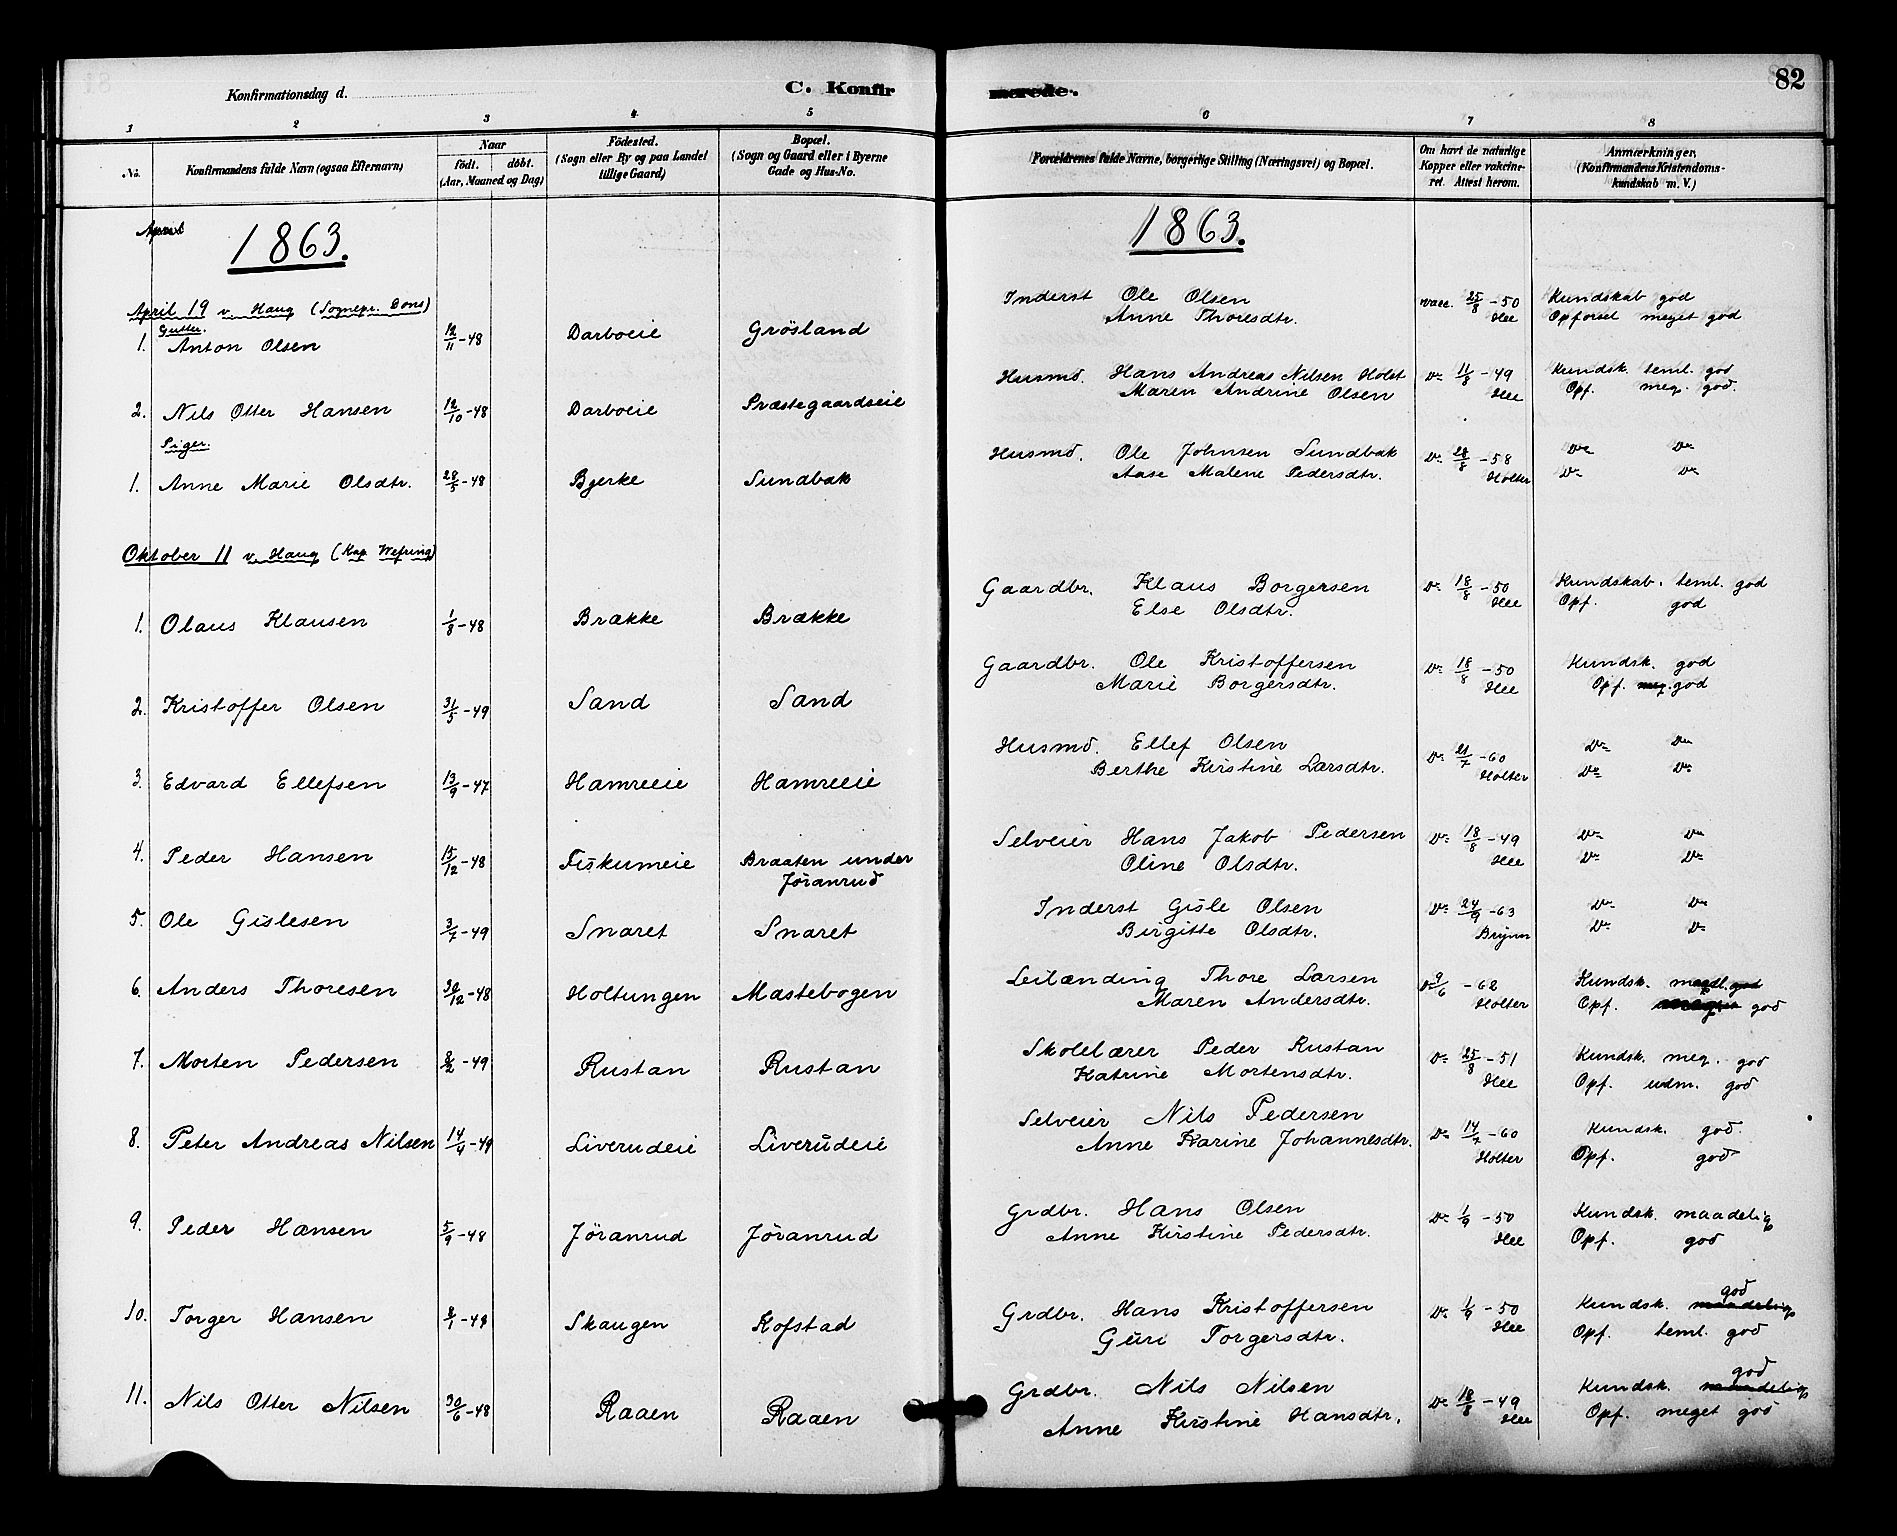 Konfirmationsdag d.
C. Konfirmerede.
82
1 2 3 4 5 6 7 8
No.
Konfirmandens fulde Navn (ogsaa Efternavn)
Naar født. døbt. (Aar, Maaned og Dag)
Födested. (Sogn eller By og paa Landet tillige Gaard)
Bopæl. (Sogn og Gaard eller i Byerne Gade og Hus-No.
Forældrenes fulde Navne, borgerlige Stilling (Næringsvei) og Bopæl.
Om havt de naturlige Kopper eller vakcineret. Attest herom.
Anmærkninger, (Konfirmandens Kristendomskundskab m. V.)
April
1863. 1863.
April 19 v. Haug (Sognepr. Dons)
Gutter.
1. Anton Olsen 12/11-48 Darboeie Grösland Inderst Ole Olsen vacc. 25/8-50 Kundskab god
Anne Thoresdtr. Hee Opførsel meget god
2. Nils Otter Hansen 12/10-48 Darboeie Præstegaardseie Husmd. Hans Andreas Nilsen Holst Do 11/8-49 Kundsk. teml. god
Maren Andrine Olsen Hee Opf. meg. god.
Piger.
1. Anne Marie Olsdtr. 28/5-48 Bjerke Sundbak Husmd. Ole Johnsen Sundbak Do 28/8-58 Do Do
Aase Malene Pedersdtr. Holter Do Do
Oktober 11 v. Haug (Kap Wefring)
1. Olaus Klausen 1/8-48 Brække Brække Gaardbr. Klaus Borgersen Do 18/8-50 Kundskab. teml. god
Else Olsdtr. Hee Opf. god
2. Kristoffer Olsen 31/5-49 Sand Sand Gaardbr. Ole Kristoffersen Do 18/8-50 Kundsk. god
Marie Borgersdtr. Hee Opf. meg. god
3. Edvard Ellefsen 13/9-47 Hamreeie Hamreeie Husmd. Ellef Olsen Do 21/7-60 Do Do
Berthe Kirstine Larsdtr. Holter Do Do
4. Peder Hansen 15/12-48 Fiskumeie Braaten under Jøranrud Selveier Hans Jakob Pedersen Do 18/8-49 Do Do
Oline Olsdtr. Hee Do Do
5. Ole Gislesen 3/7-49 Snaret Snaret Inderst Gisle Olsen Do 24/9-63 Do Do
Birgitte Olsdtr. Brynn Do Do
6. Anders Thoresen 30/12-48 Holtungen Mastebogen Leilænding Thore Larsen Do 9/6-62 Kundsk. maadl. god
Maren Andersdtr. Holter Opf. god
7. Morten Pedersen 8/2-49 Rustan Rustan Skolelærer Peder Rustan Do 25/8-51 Kundsk. meg. god
Katrine Mortensdtr. Hee Opf. udm. god
8. Peter Andreas Nilsen 14/4-49 Liverudeie Liverudeie Selveier Nils Pedersen Do 14/7-60 Kundsk. god.
Anne Karine Johannesdtr. Holter Opf. god
9. Peder Hansen 5/9-48 Jøranrud Jøranrud Grdbr. Hans Olsen Do 1/9-50 Kundsk. maadelig
Anne Kirstine Pedersdtr. Hee Opf. god
10. Torger Hansen 8/1-49 Skaugen Kofstad Grdbr. Hans Kristoffersen Do 1/9-50 Kundsk. maadelig god
Guri Torgersdtr. Hee Opf. teml. god
11. Nils Otter Nilsen 30/6-48 Raaen Raaen Grdbr. Nils Nilsen Do 18/8-49 Kundsk. maadelig god
Anne Kirstine Hansdtr. Hee Opf. meget god